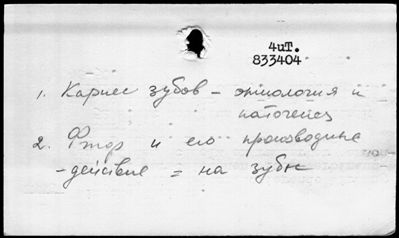 4иТ.
833404
1. Кариес зубов – этиология и
патогенез
2. Фтор и его производные
- действие = на зубы